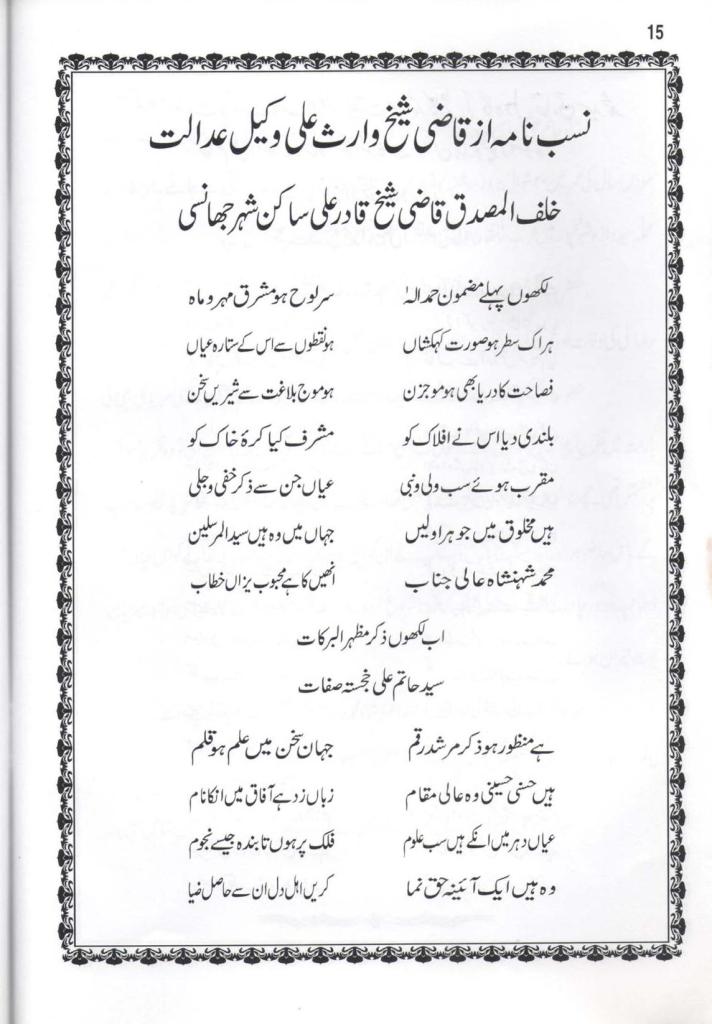 15
نسب نامہ از قاضی شیخ وارث علی وکیل عدالت
خلف المصدق قاضی شیخ قادر علی ساکن شہر جھانسی
لکھوں پہلے مضمون حمد الہٰ سر لوح ہو مشرق مہر و ماہ
ہر اک سطر ہو صورت کہکشاں ہو نقطوں سے اس کے ستارہ عیاں
فصاحت کا دریا بھی ہو موجزن ہو موج بلاغت سے شیریں سخن
بلندی دیا اس نے افلاک کو مشرف کیا کرۂ خاک کو
مقرب ہوئے سب ولی و نبی عیاں جن سے ذکر خفی و جلی
ہیں مخلوق میں جو ہر اولیں جہاں میں وہ ہیں سید المرسلین
محمد شہنشاہ عالی جناب انھیں کا ہے محبوب یزاں خطاب
اب لکھوں ذکر مظہر البرکات
سید حاتم علی خجستہ صفات
ہے منظور ہو ذکر مرشد رقم جہان سخن میں علم ہو قلم
ہیں حسنی حسینی وہ عالی مقام زباں زد ہے آفاق میں انکا نام
عیاں دہر میں انکے ہیں سب علوم فلک پر ہوں تابندہ جیسے نجوم
وہ ہیں ایک آئینہ حق نما کریں اہل دل ان سے حاصل ضیا